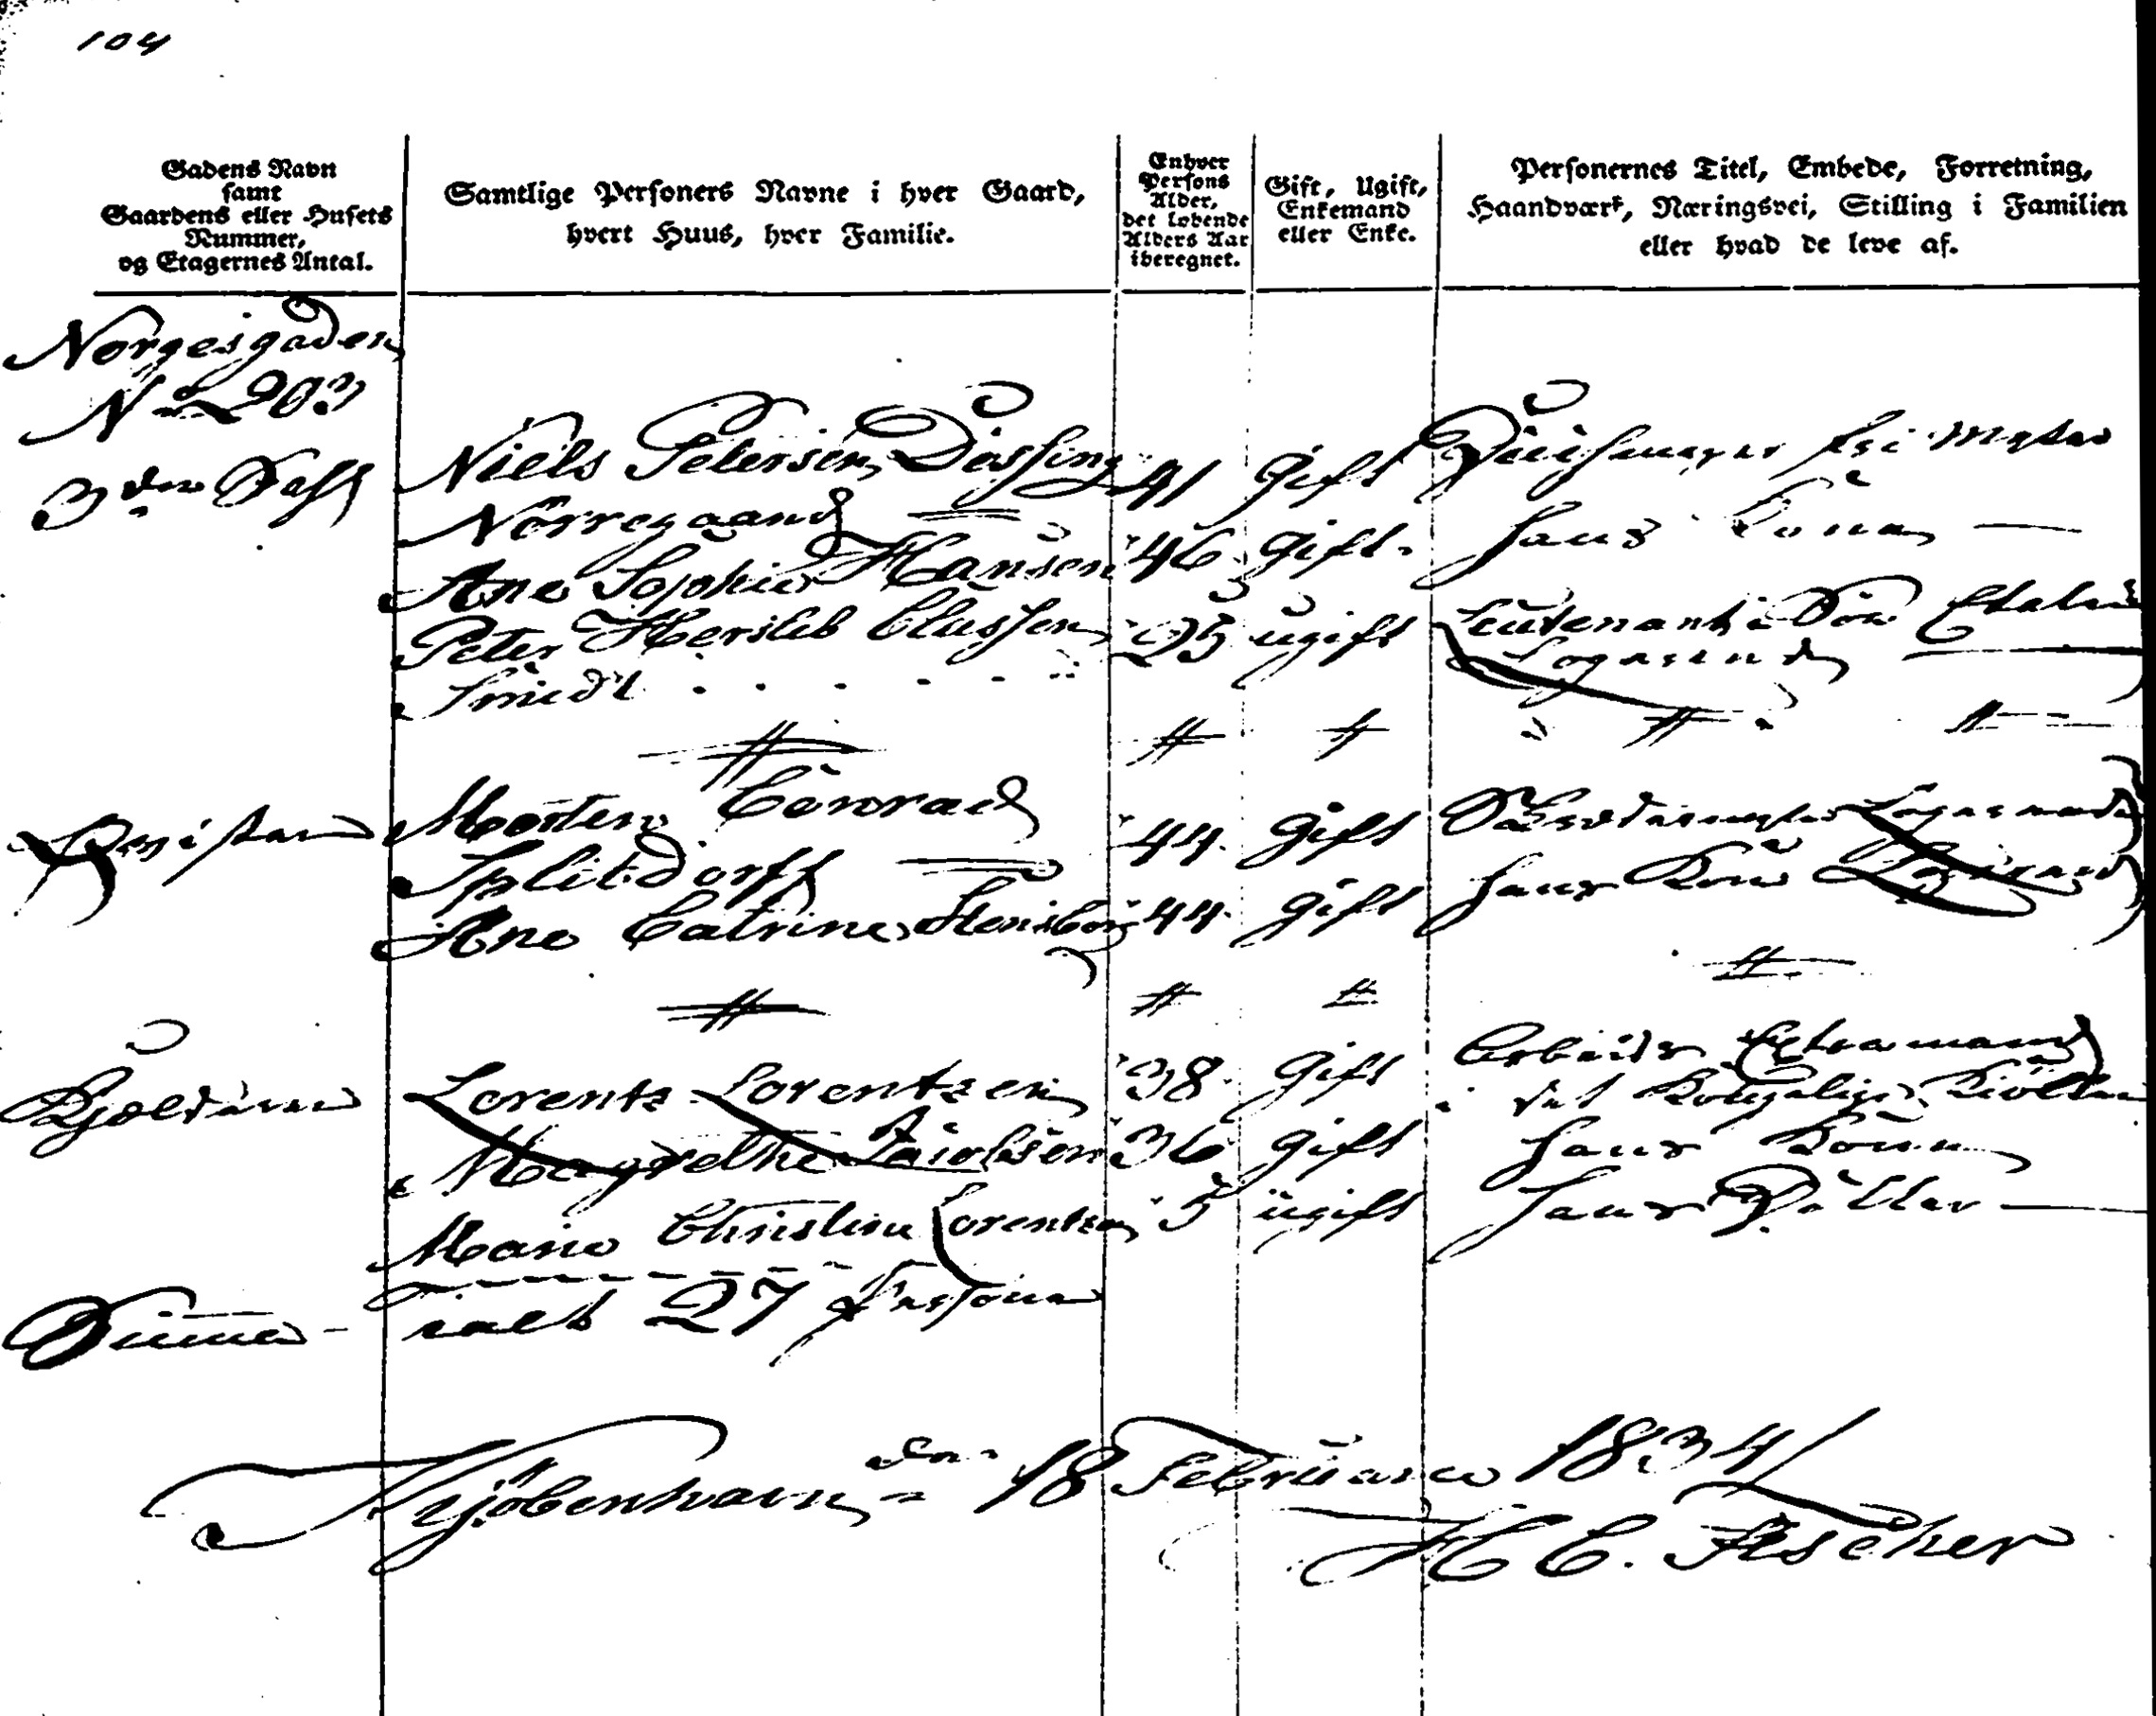 104
Gadens Navn
samt
Gaardens eller Husets
Nummer,
og Etagernes Antal.
Samtlige Personers Navne i hver Gaard,
hvert Huus, hver Familie.
Enhver
Persons
Alder,
det løbende
Alders Aar
iberegnet.
Gift, Ugift,
Enkemand
eller Enke.
Personernes Titel, Embede, Forretning,
Haandværk, Næringsvei, Stilling i Familien
eller hvad de leve af.
Norgesgaden
No 203
3die
Niels Petersen Døssing 41 Gift
Nörregaard
Ane Sophie Hansen 46 Gift. Hans Kone
Peter Hersleb Clussen 25 ugift Leutenant i
Smidt Logerende
Morten Conrad 44 Gift
Splitdorff
Ane Catrine 44 gift Hans Kone
Kjelderen
Lorentz Lorentzen 38 Gift Arbeids
i det Kongelige
Magrethe Jacobsen 36 gift Hans Kone
Marie Christine Lorentzen 5 ugift Hans Datter
Summa - ialt 27 Personer
Kjöbenhavn den 18 Februar 1834
H C. Fischer